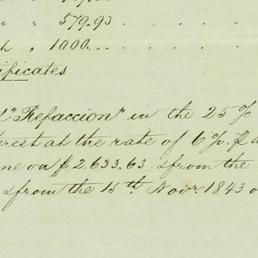 " " 579.93.
h " 1000.——
ificates
"Refaccion" in the 25%
erest at the rate of 6%. p a
ne on $ 2.633.63. from the
from the 15th Novr. 1843